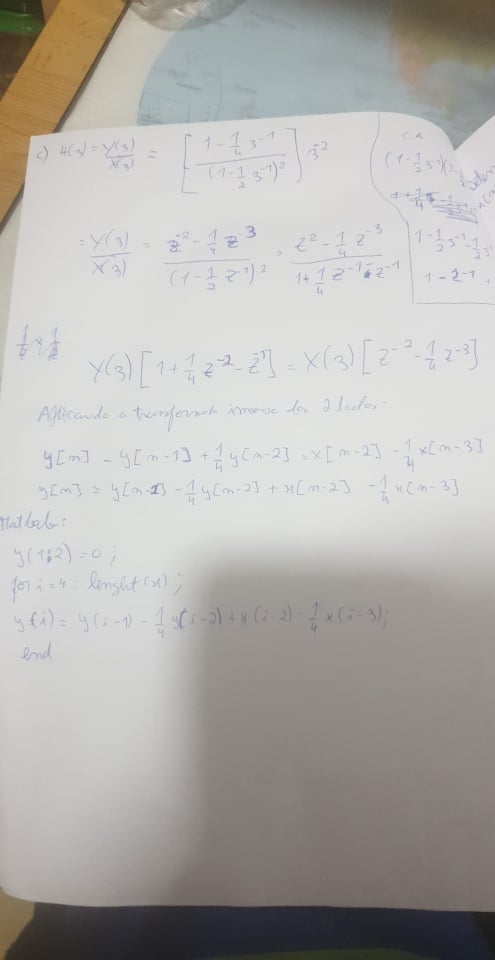 c) H(z) = Y(z)/X(z) = [ (1 - 1/4 z^-1) / (1 - 1/2 z^-1)^2 ] z^-2
C.A
(1 - 1/2 z^-1)(
1 - 1/2 z^-1 - 1/2 z
1 - z^-1 +
= Y(z)/X(z) = (z^-2 - 1/4 z^-3) / (1 - 1/2 z^-1)^2 = (z^2 - 1/4 z^-3) / (1 + 1/4 z^-1 - z^-1)
Y(z) [1 + 1/4 z^-2 - z^-1] = X(z) [z^-2 - 1/4 z^-3]
Aplicando a transformada inversa dos 2 lados.
y[n] - y[n-1] + 1/4 y[n-2] = x[n-2] - 1/4 x[n-3]
y[n] = y[n-1] - 1/4 y[n-2] + x[n-2] - 1/4 x[n-3]
Matlab:
y(1:2) = 0;
for i = 4 : lenght(x);
y(i) = y(i-1) - 1/4 y(i-2) + x(i-2) - 1/4 x(i-3);
end